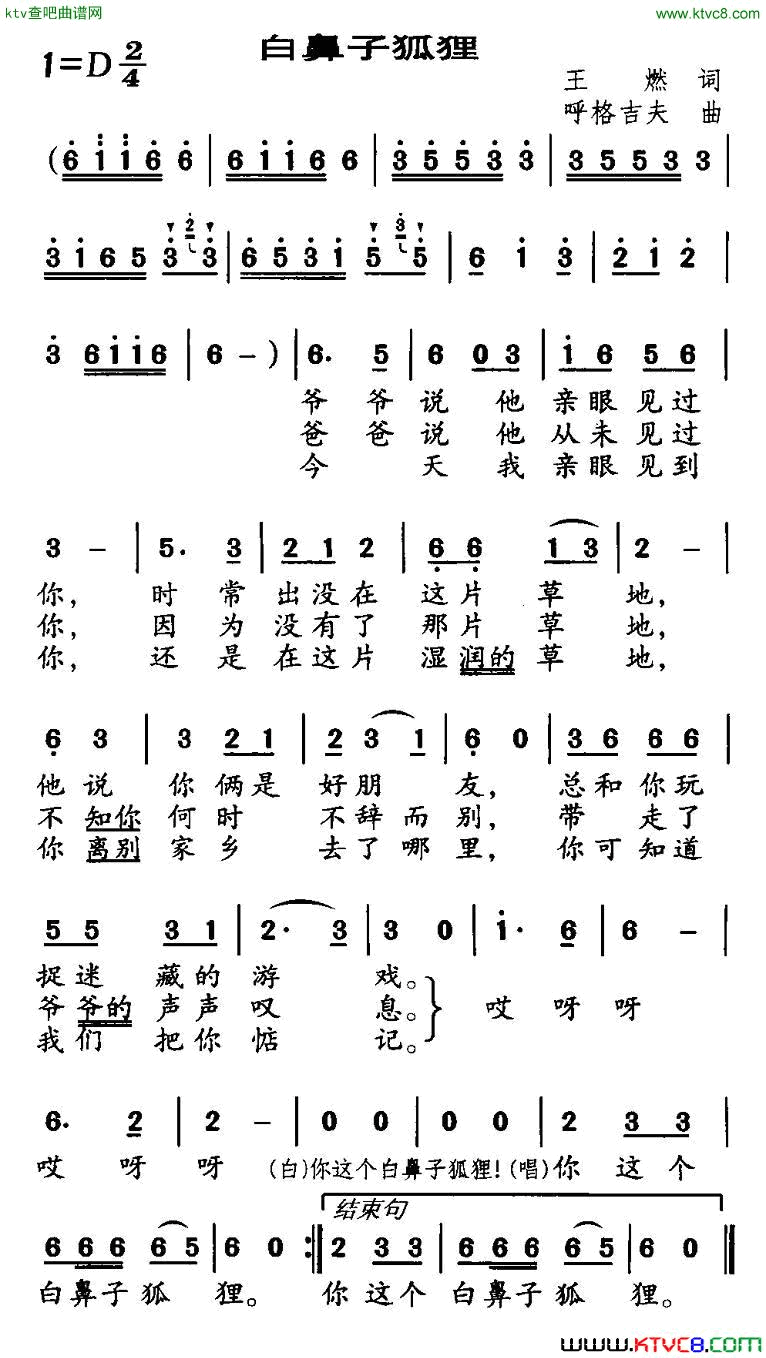 ktv查吧曲谱网
www.ktvc8.com
白鼻子狐狸
1=D 2/4
王 燃 词
呼格吉夫 曲
(6 i i 6 6 | 6 i i 6 6 6 | 3 5 5 3 3 | 3 5 5 3 3 |
3 i 6 5 3 2 3 | 6 5 3 i 5 3 5 | 6 i 3 | 2 i 2 |
3 6 i i 6 | 6 – ) | 6. 5 | 6 0 3 | i 6 5 6 |
爷 爷 说 他 亲 眼 见 过
爸 爸 说 他 从 未 见 过
今 天 我 亲 眼 见 到
3 – | 5. 3 | 2 1 2 | 6 6 1 3 | 2 – |
你, 时 常 出 没 在 这 片 草 地,
你, 因 为 没 有 了 那 片 草 地,
你, 还 是 在 这 片 湿 润的 草 地,
6 3 | 3 2 1 | 2 3 1 | 6 0 | 3 6 6 6 |
他 说 你 俩 是 好 朋 友, 总 和 你 玩
不 知你 何 时 不 辞 而 别, 带 走 了
你 离别 家 乡 去 了 哪 里, 你 可 知 道
5 5 3 1 | 2· 3 | 3 0 | i· 6 | 6 – |
捉 迷 藏 的 游 戏。
爷 爷的 声 声 叹 息。 哎 呀 呀
我 们 把 你 惦 记。
6. 2 | 2 – | 0 0 | 0 0 | 2 3 3 |
哎 呀 呀 (白)你这个白鼻子狐狸!(唱)你 这 个
结束句
6 6 6 6 5 | 6 0 :‖ 2 3 3 | 6 6 6 6 5 | 6 0 ‖
白 鼻 子 狐 狸。 你 这 个 白 鼻 子 狐 狸。
www.KTVC8.com